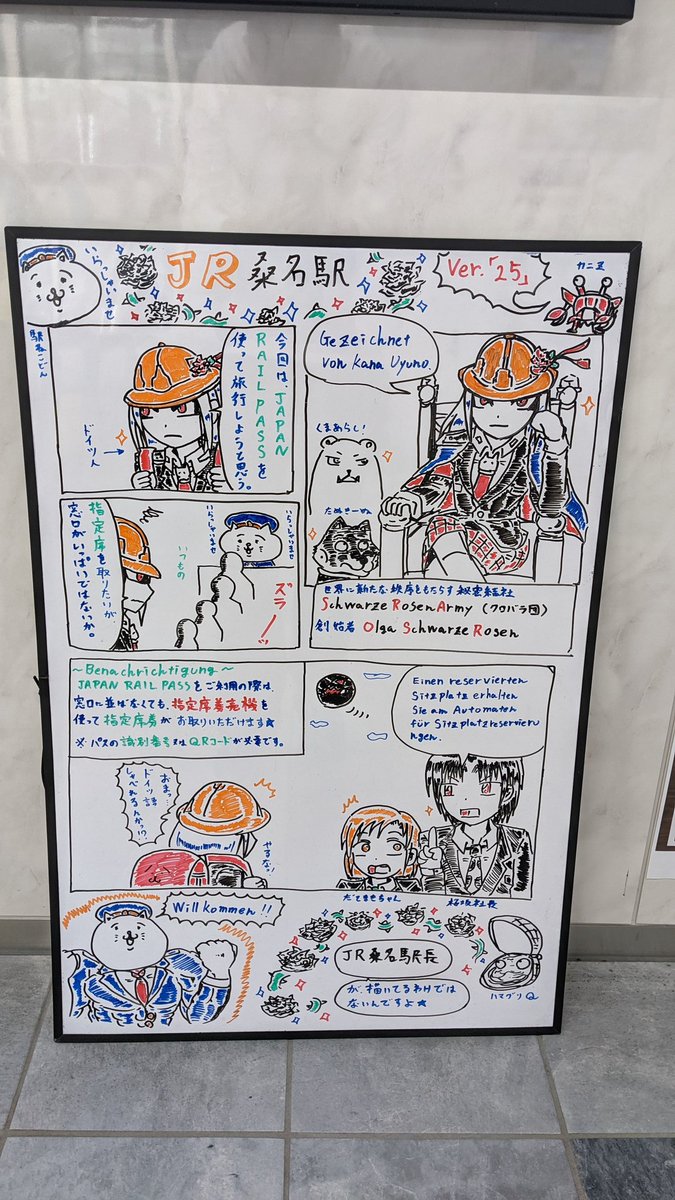 いらっしゃいませ
JR 桑名駅
Ver.「25」
カニ正
駅ねこどん
今回は、JAPAN
RAIL PASSを
使って旅行しようと思う。
ドイツ人
Gezeichnet
von Kana Uyuno.
くまあらし!
たぬきーぬ
指定席を取りたいが
窓口がいっぱいではないか。
いつもの
いらっしゃいませ
いらっしゃいませ
ズラーッ
世界に新たな秩序をもたらす秘密結社
Schwarze Rosen Army (クロバラ団)
創始者 Olga Schwarze Rosen
~Benachrichtigung~
JAPAN RAIL PASSをご利用の際は、
窓口に並ばなくても、指定席券売機を
使って指定席券がお取りいただけます☆
※パスの識別番号又はQRコードが必要です。
Einen reservierten
Sitzplatz erhalten
Sie am Automaten
für Sitzplatzreservieru
ngen.
おまっ
ドイツ語
しゃべれるんか!?
やるなっ!
だてまきちゃん
桜坂社長
Willkommen!!
JR桑名駅長
が、描いてるわけでは
ないんですよ☆
ハマグリQ